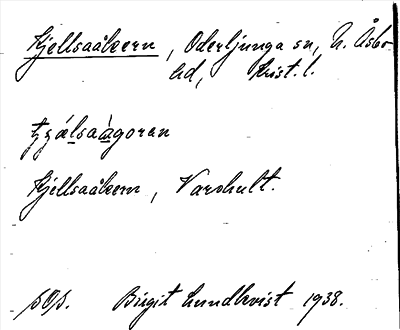 Kjellsaåkern, Oderljunga sn, N. Åsbo
hd, Krist. l.
Kjellsaåkern, Varshult.
Birgit Lundkvist 1938.